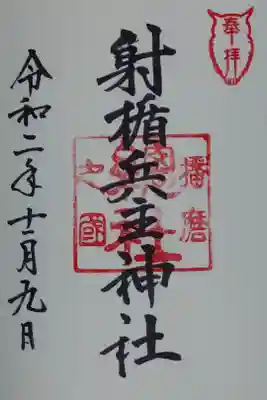 奉拝
射楯兵主神社
播磨
之國
令和二年十一月九日